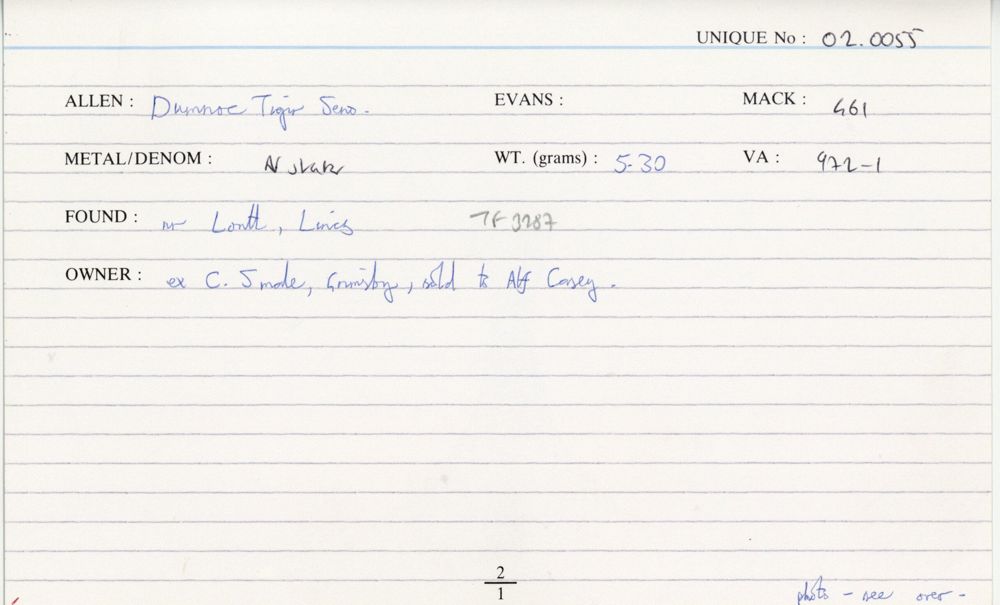 UNIQUE No : 02.0055
ALLEN : Dumnoc Tigir Seno. EVANS : MACK : 461
METAL/DENOM : AV stater WT. (grams) : 5.30 VA : 972-1
FOUND : nr Louth, Lincs TF 3287
OWNER : ex C. Smale, Grimsby, sold to Alf Casey.
2
1
photo - see over -